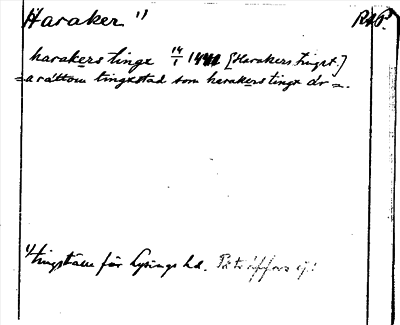 Haraker 1)
RAP.
harakers tinge 14/1 1441 [Harakers tingst.]
= a rättom tingxstad som harakers tinge är =.
1) tingställe för Lysings hd. Påträffas ej!